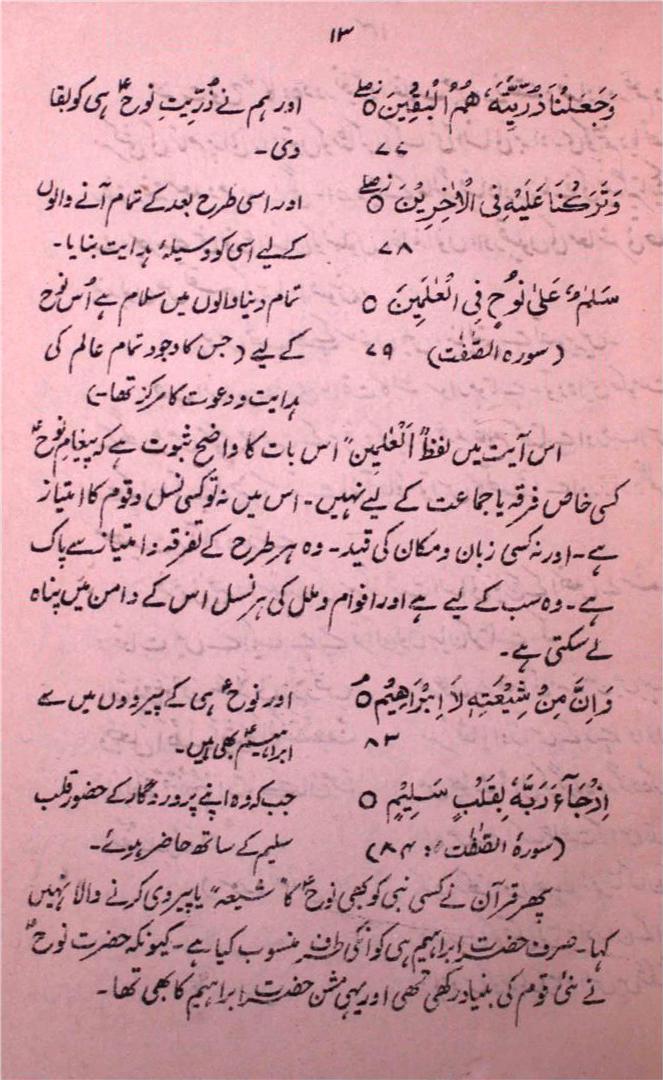 ۱۳
وَجَعَلْنَا ذُرِّيَّتَهٗ هُمُ الْبٰقِيْنَ ۝ۖز اور ہم نے ذُرِّیتِ نوحؑ ہی کو بقا
۷۷ دی۔
وَتَرَكْنَا عَلَيْهِ فِى الْاٰخِرِيْنَ ۝ۖز اور اسی طرح بعد کے تمام آنے والوں
۷۸ کے لیے اسی کو وسیلۂ ہدایت بنایا۔
سَلٰمٌ عَلٰى نُوْحٍ فِى الْعٰلَمِيْنَ ۝ تمام دنیا والوں میں سلام ہے اُس نوح
(سورہ الصّٰفّٰت) ۷۹ کے لیے (جس کا وجود تمام عالم کی
ہدایت و دعوت کا مرکز تھا۔)
اس آیت میں لفظ "اَلْعٰلمین" اس بات کا واضح ثبوت ہے کہ پیغامِ نوحؑ
کسی خاص فرقہ یا جماعت کے لیے نہیں۔ اس میں نہ تو کسی نسل و قوم کا امتیاز
ہے۔ اور نہ کسی زبان و مکان کی قید۔ وہ ہر طرح کے تفرقہ و امتیاز سے پاک
ہے۔ وہ سب کے لیے ہے اور اقوام و ملل کی ہر نسل اس کے دامن میں پناہ
لے سکتی ہے۔
وَاِنَّ مِنْ شِيْعَتِهٖ لَاِبْرَاهِيْمَ ۝ۘ اور نوحؑ ہی کے پیرووں میں سے
۸۳ ابراہیمؑ بھی ہیں۔
اِذْ جَآءَ رَبَّهٗ بِقَلْبٍ سَلِيْمٍ ۝ جب کہ وہ اپنے پروردگار کے حضور قلب
(سورۂ الصّٰفّٰت: ۸۴) سلیم کے ساتھ حاضر ہوئے۔
پھر قرآن نے کسی نبی کو بھی نوحؑ کا "شیعہ" یا پیروی کرنے والا نہیں
کہا۔ صرف حضرت ابراہیم ہی کو انکی طرف منسوب کیا ہے۔ کیونکہ حضرت نوحؑ
نے نئی قوم کی بنیاد رکھی تھی اور یہی مشن حضرت ابراہیم کا بھی تھا۔